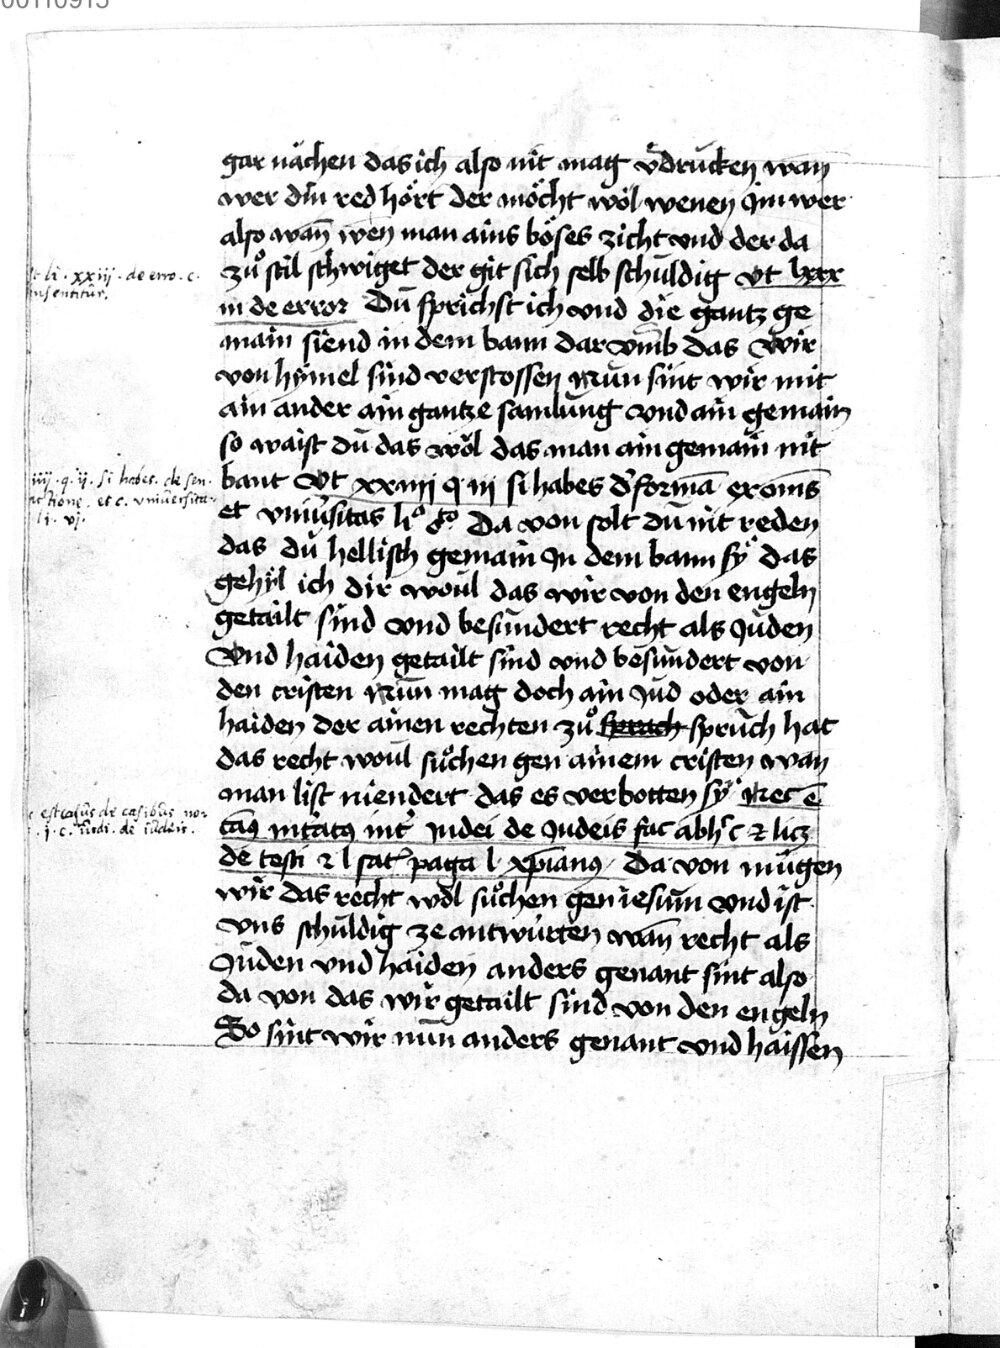 00110915
gar nächen das ich also nit mag v̊drucken wan
wer din red hört der möcht wol wenen Jm wer
also wan̄ wen man ains böses zicht vnd der da
zů stil schwiget der git sich selb schuldig vt lxxx
iii de error Du sprichst ich vnd die gantz ge
main siend in dem bann dar vmb das wir
von hymel sind verstossen Nun sint wir mit
ain ander ain gantze samlung vnd ain gemain
so waist du das wol das man ain gemain nit
bant Vt xxiiii q iii si habes
et vniu̓sitas li° Da von solt du nit reden
das dü hellisch gemain Jn dem bann sÿ das
gehyl ich dir woul das wir von den engeln
getailt sind vnd besundert recht als Juden
Vnd haiden getailt sind vnd besundert von
den cristen Nun mag doch ain Jud oder ain
haiden der ainen rechten zů sprach spruch hat
das recht woul sůchen gen ainem cristen wan
man list niendert das es verbotten sÿ Nec ē
Judei de Judeis
de testi xp̄ianus Da von mügen
wir das recht wol sůchen gen iesum vnd ist
vns schuldig ze antwurten wan̄ recht als
Juden vnd haiden anders genant sint also
da von das wir getailt sind von den engeln
So sint wir nun anders genant vnd haissen
li . xxiij . de erro . c .
nsentitur .
iiij . q . ij . si habes . de sen
et c . vniuersita
li . vj .
est casus de casibus
j . c . iudi . de iudeis .